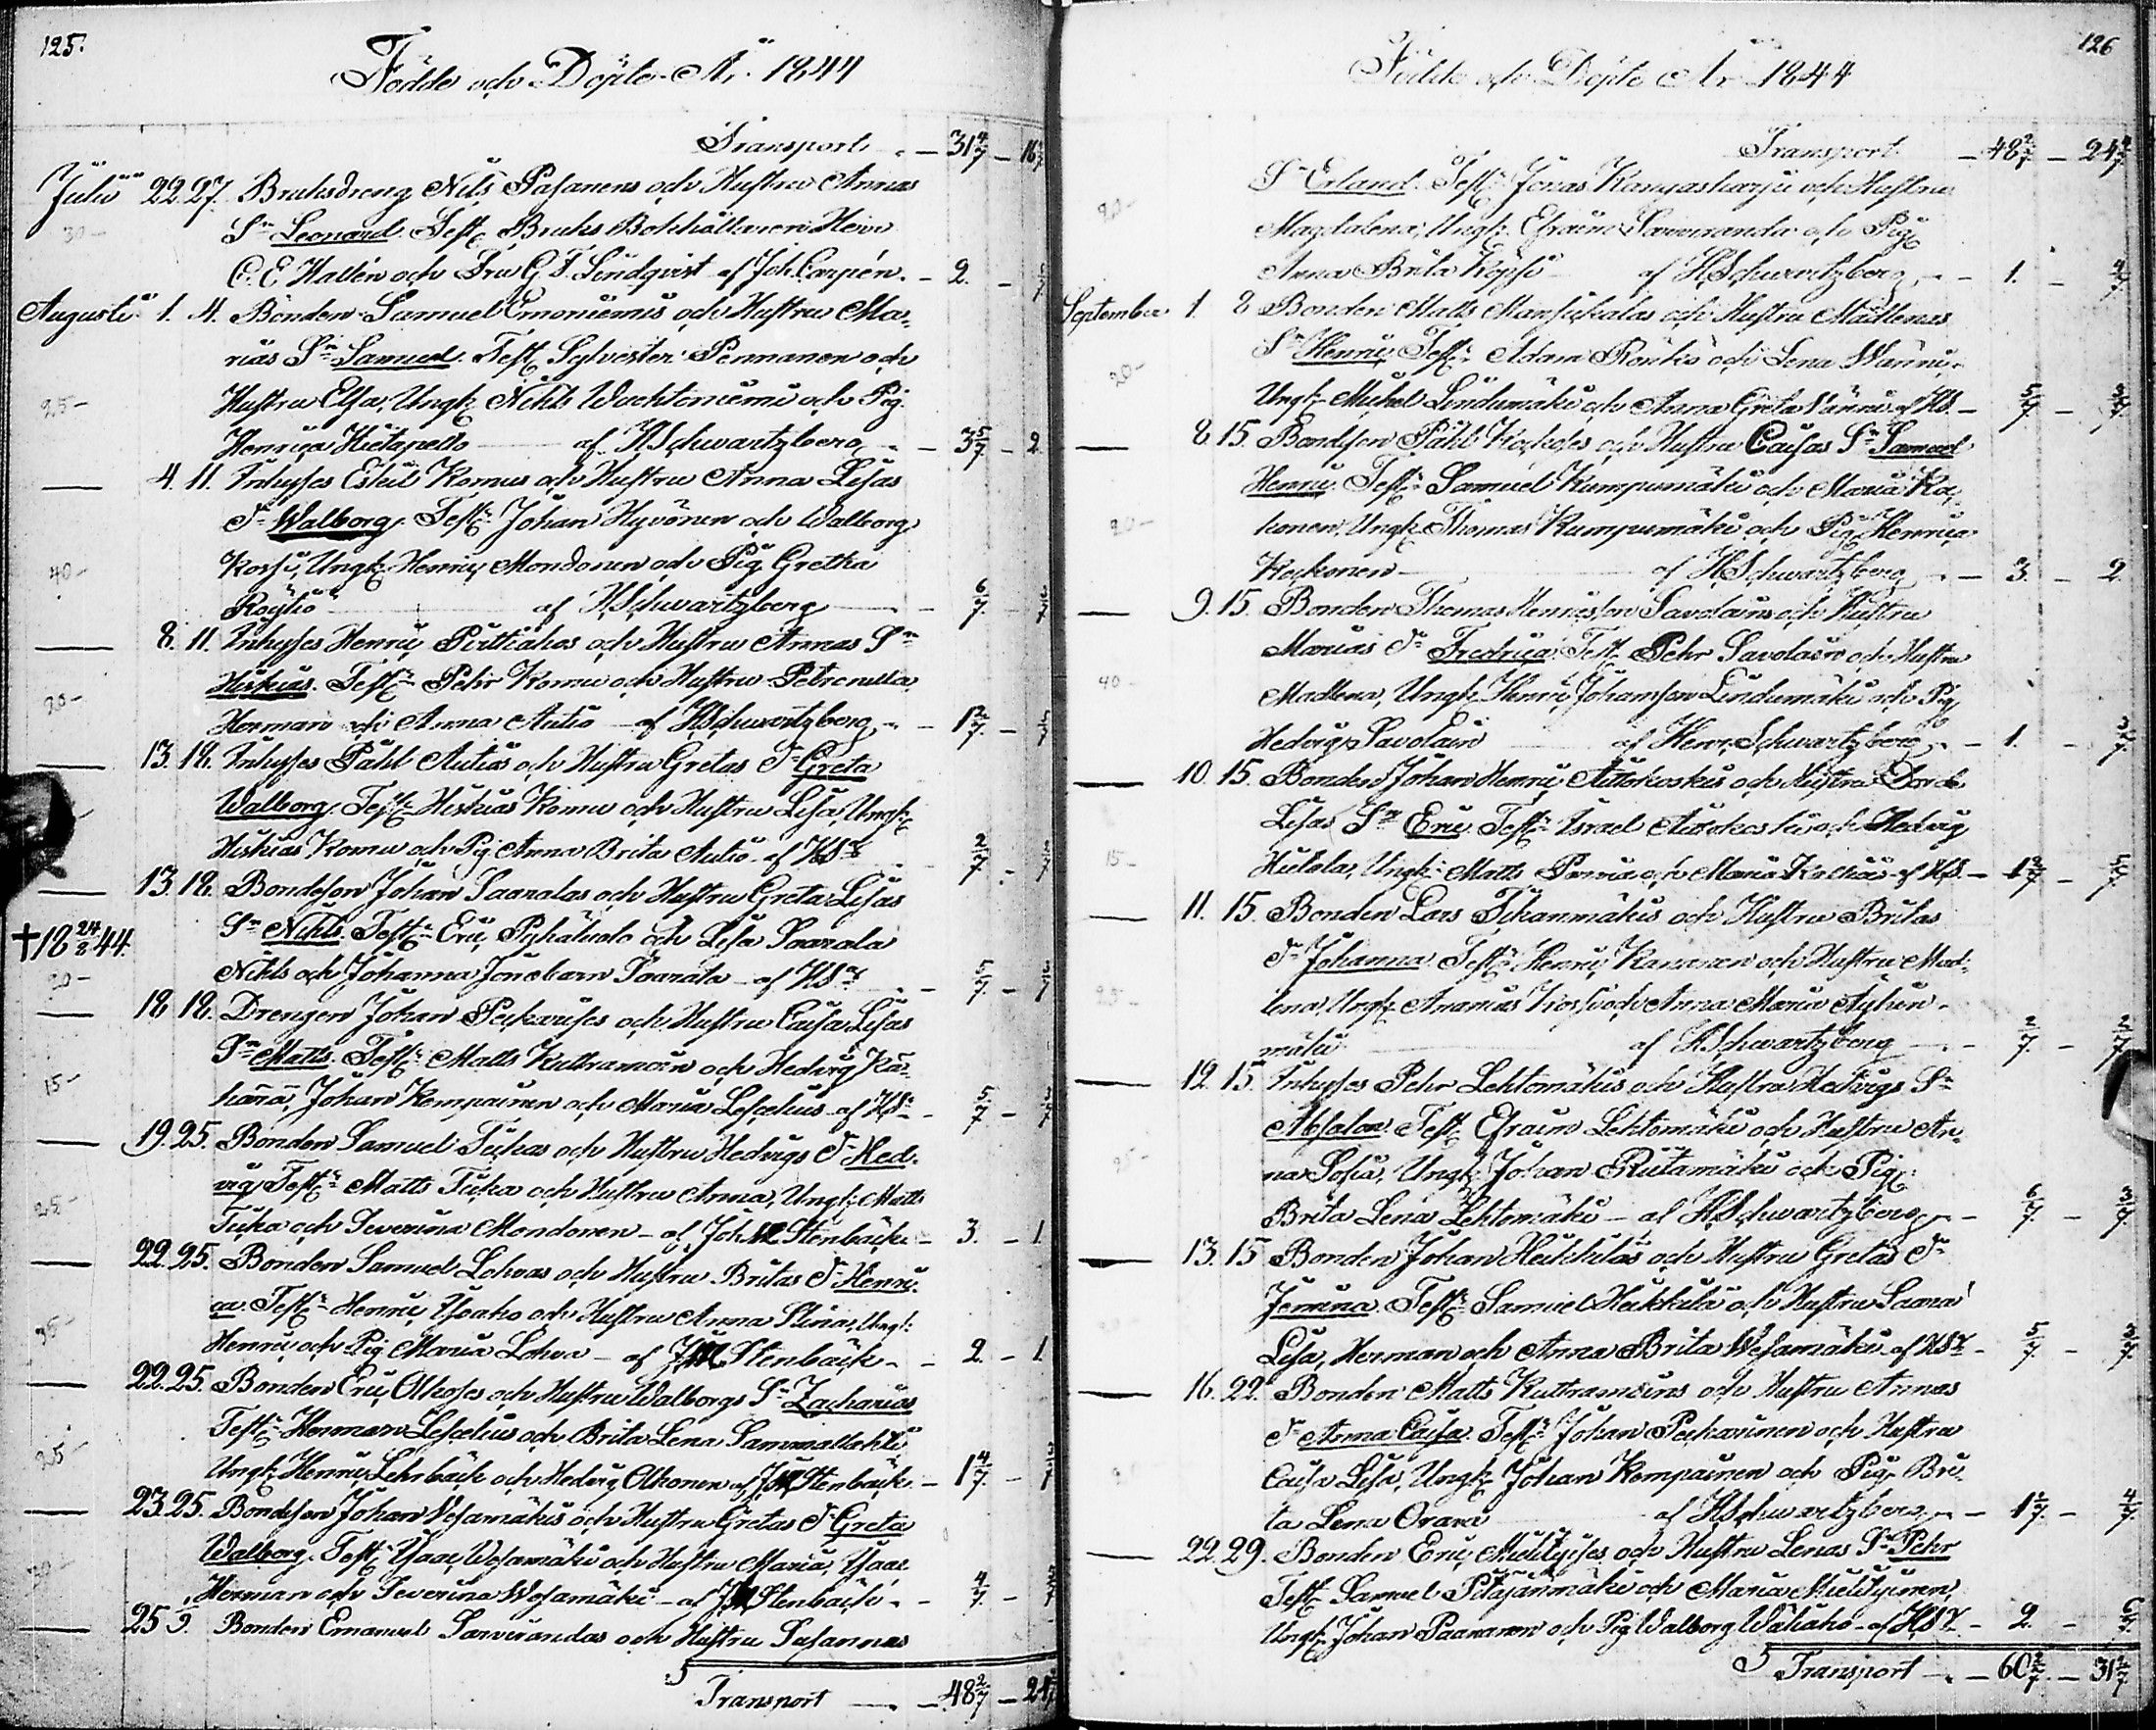 125.
Födde och Döpte År 1844
Transport. — 31 4/7 — 16
Julii 22. 27. Bruksdreng Nils Pasanens och Hustru Annas
30 — Sn Leonard. Test. Bruks Bokhållaren Herr
C. E. Hallén och Fru G. F. Lindqvist af Joh. Carpén. — 2.
Augusti 1. 4. Bonden Samuel och Hustru Ma-
rias Sn Samuel. Test. Sylvester Pennanen och
25 — Hustru Elsa, Ungk. Nikls och Pig.
Henrica Hietapelto af HSchwartzberg — 3 5/7 — 2
— 4. 11. Inhyses Eskil Komus och Hustru Anna Lisas
Dr Walborg. Test. Johan Hyvönen och Walborg
40 — Korsi, Ungk. Henric Mondonen och Pig. Gretha
af HSchwartzberg — 6/7
— 8. 11. Inhyses Henric och Hustru Annas Sn
20 — Hiskias. Test. Pehr Komu och Hustru Petronella,
Herman och Anna Autio af HSchwartzberg — 1 2/7
— 13. 18. Inhyses Påhl Autios och Hustru Gretas Dr Greta
Walborg. Test. Hiskias Komu och Hustru Lisa, Ungk.
Hiskias Komu och Pig. Anna Brita Autio af HSz — 2/7
— 13. 18. Bondeson Johan Saaralas och Hustru Greta Lisas
†18 24/8 44. Sn Nikls. Test. Eric och Lisa Saarala
20 — Nikls och Johanna Saarala af HSz — 5/7
— 18. 18. Drengen Johan Peckarises och Hustru Caisa Lisas
Sn Matts. Test. Matts Kuttramoin och Hedvig Kar-
15 — Johan Kempainen och Maria Lescelius af HSz — 5/7
— 19. 25. Bonden Samuel Tuikas och Hustru Hedvigs Dr Hed-
vig. Test. Matts Tuika och Hustru Anna, Ungk. Matts
25 — Tuika och Severina Mondonen af Joh M Stenbäck — 3. — 1.
— 22. 25. Bonden Samuel Lohvas och Hustru Britas Dr Henri-
ca. Test. Henric och Hustru Anna Stina, Ungk.
Henric och Pig. Maria Lohva af JM Stenbäck — 2. — 1.
— 22. 25. Bonden Eric Olkoses och Hustru Walborgs Sn Zacharias
Test. Herman Lescelius och Brita Lena Sammallahti
25 — Ungk. Henric Lehrbäck och Hedvig Olkonen af JM Stenbäck — 1 4/7
— 23. 25. Bondeson Johan Vesamäkis och Hustru Gretas Dr Greta
Walborg. Test. Ysaac Wesamäki och Hustru Maria, Ysaac
Herman och Severina Wesamäki af JM Stenbäck — 4/7
— 25 Bonden Emanuel Sarvirandas och Hustru Susannas
Transport — 48 2/7 — 24
126
Födde och Döpte År 1844
Transport — 48 2/7 — 24
20 — Sn Erland. Test. Jonas Kangasharju och Hustru
Magdalena, Ungk. Efraim Sarviranda och Pig.
Anna Brita af HSchwartzberg — 1.
September 1. 8 Bonden Matts Mansikalas och Hustru Madlenas
20 — Sn Henric, Test. Adam och Lena
Ungk. Michel Lindumäki och Anna Greta af HS. — 5/7
— 8. 15. Bondeson Påhl och Hustru Caisas Sn Samuel
Henric. Test. Samuel Kumpumäki och Maria
20 — Ungk. Thomas Kumpumäki och Pig. Henrica
af HSchwartzberg — 3. — 2
— 9. 15. Bonden Thomas Henricsson Savolains och Hustru
Marias Dr Fredrica. Test. Pehr Savolain och Hustru
40 — Madlena, Ungk. Henric Johansson Lindumäki och Pig.
Hedvig Savolain af Henr. Schwartzberg — 1.
— 10. 15. Bonden Johan Henric Autiokoskis och Hustru
Lisas Sn Eric. Test. Israel Autiokoski och Hedvig
15 — Ungk. Matts och Maria af HS. — 1 2/7
— 11. 15. Bonden Lars Tikanmäkis och Hustru Britas
Dr Johanna. Test. Henric Kananen och Hustru Mad-
25 — lena, Ungk. Ananias Korsi och Anna Maria
mäki af HSchwartzberg — 2/7
— 12. 15. Inhyses Pehr Lehtomäkis och Hustru Hedvigs Sn
Absalon. Test. Efraim Lehtomäki och Hustru An-
25 — na Sofia, Ungk. Johan och Pig.
Brita Lena Lehtomäki af HSchwartzberg — 6/7
— 13. 15 Bonden Johan Heikkiläs och Hustru Gretas Dr
Jemina. Test. Samuel Heikkilä och Hustru Saara
Lisa, Herman och Anna Brita Wesamäki af HSz — 5/7
— 16. 22. Bonden Matts Kuttramoins och Hustru Annas
Dr Anna Caisa. Test. Johan Peckarinen och Hustru
Caisa Lisa, Ungk. Johan Kempainen och Pig. Bri-
ta Lena af HSchwartzberg — 1 2/7 — 4/7
— 22. 29. Bonden Eric och Hustru Lenas Sn Pehr
Test. Samuel Pitäjänmäki och Maria
Ungk. Johan Paananen och Pig. Walborg af HSz — 2. —
Transport — 60 2/7 — 31 2/7